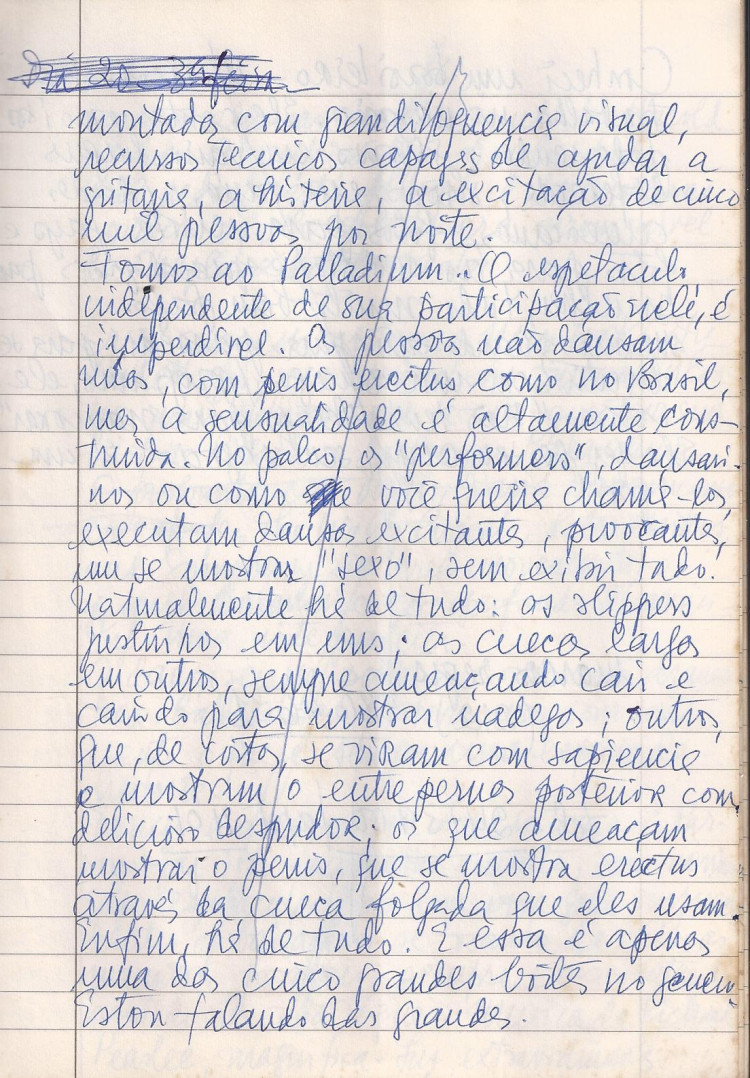 Dia 20 3ª feira
montados com grandiloquencia visual,
recursos tecnicos capazes de ajudar a
gritaria, a histeria, a excitação de cinco
mil pessoas por noite.
Fomos ao Palladium. O espetaculo,
independente de sua participação nele, é
imperdivel. As pessoas não dansam
nuas, com penis erectus como no Brasil,
mas a sensualidade é altamente cons-
truida. No palco, os "performers", dansari-
nos ou como você queira chama-los,
executam dansas excitantes, provocantes,
se mostram "sexo", sem exibir tudo.
Naturalmente há de tudo: os slippers
justinhos em uns; as cuecas largas
em outros, sempre ameaçando cair e
caindo para mostrar nadegas; outros,
que, de costas, se viram com sapiencia
e mostram o entrepernas posterior com
delicioso despudor; os que ameaçam
mostrar o penis, que se mostra erectus
através da cueca folgada que eles usam.
Enfim, há de tudo. E essa é apenas
uma das cinco grandes boites no genero.
Estou falando das grandes.